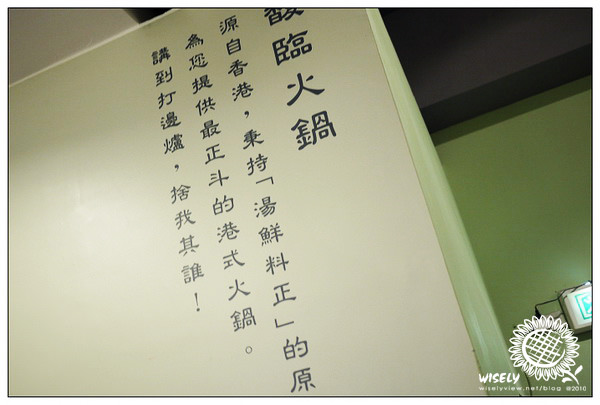 馥臨火鍋
源自香港，秉持「湯鮮料正」的原
為您提供最正斗的港式火鍋。
講到打邊爐，捨我其誰！
WISELY
wiselyview.net/blog @2010